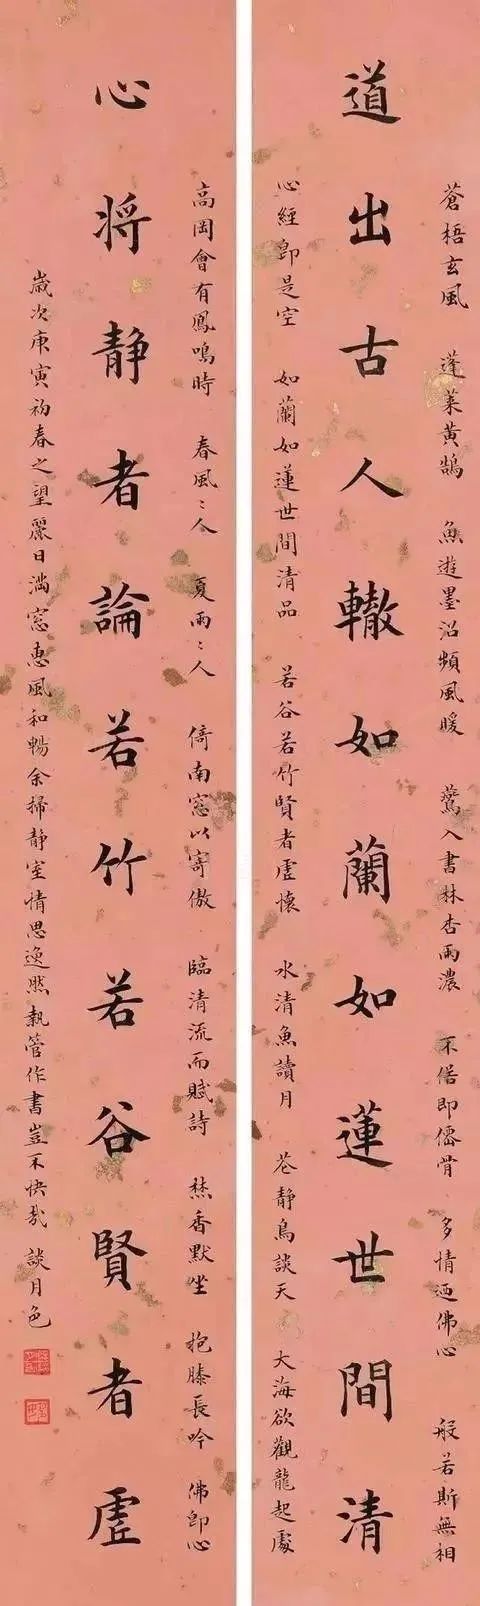 蒼梧玄風　蓬萊黃鵠　魚遊墨沼頻風暖　鶯入書林杏雨濃　不俗即僊骨　多情迺佛心　般若斯無相
道出古人轍如蘭如蓮世間清
心經即是空　如蘭如蓮世間清品　若谷若竹賢者虛懷　水清魚讀月　花静鳥談天　大海欲觀龍起處
高岡會有鳳鳴時　春風〻人　夏雨〻人　倚南窓以寄傲　臨清流而賦詩　焚香默坐　抱膝長吟　佛即心
心将静者論若竹若谷賢者虛
歲次庚寅初春之望麗日滿窓惠風和暢余掃静室情思逸然執管作書豈不快哉　談月色